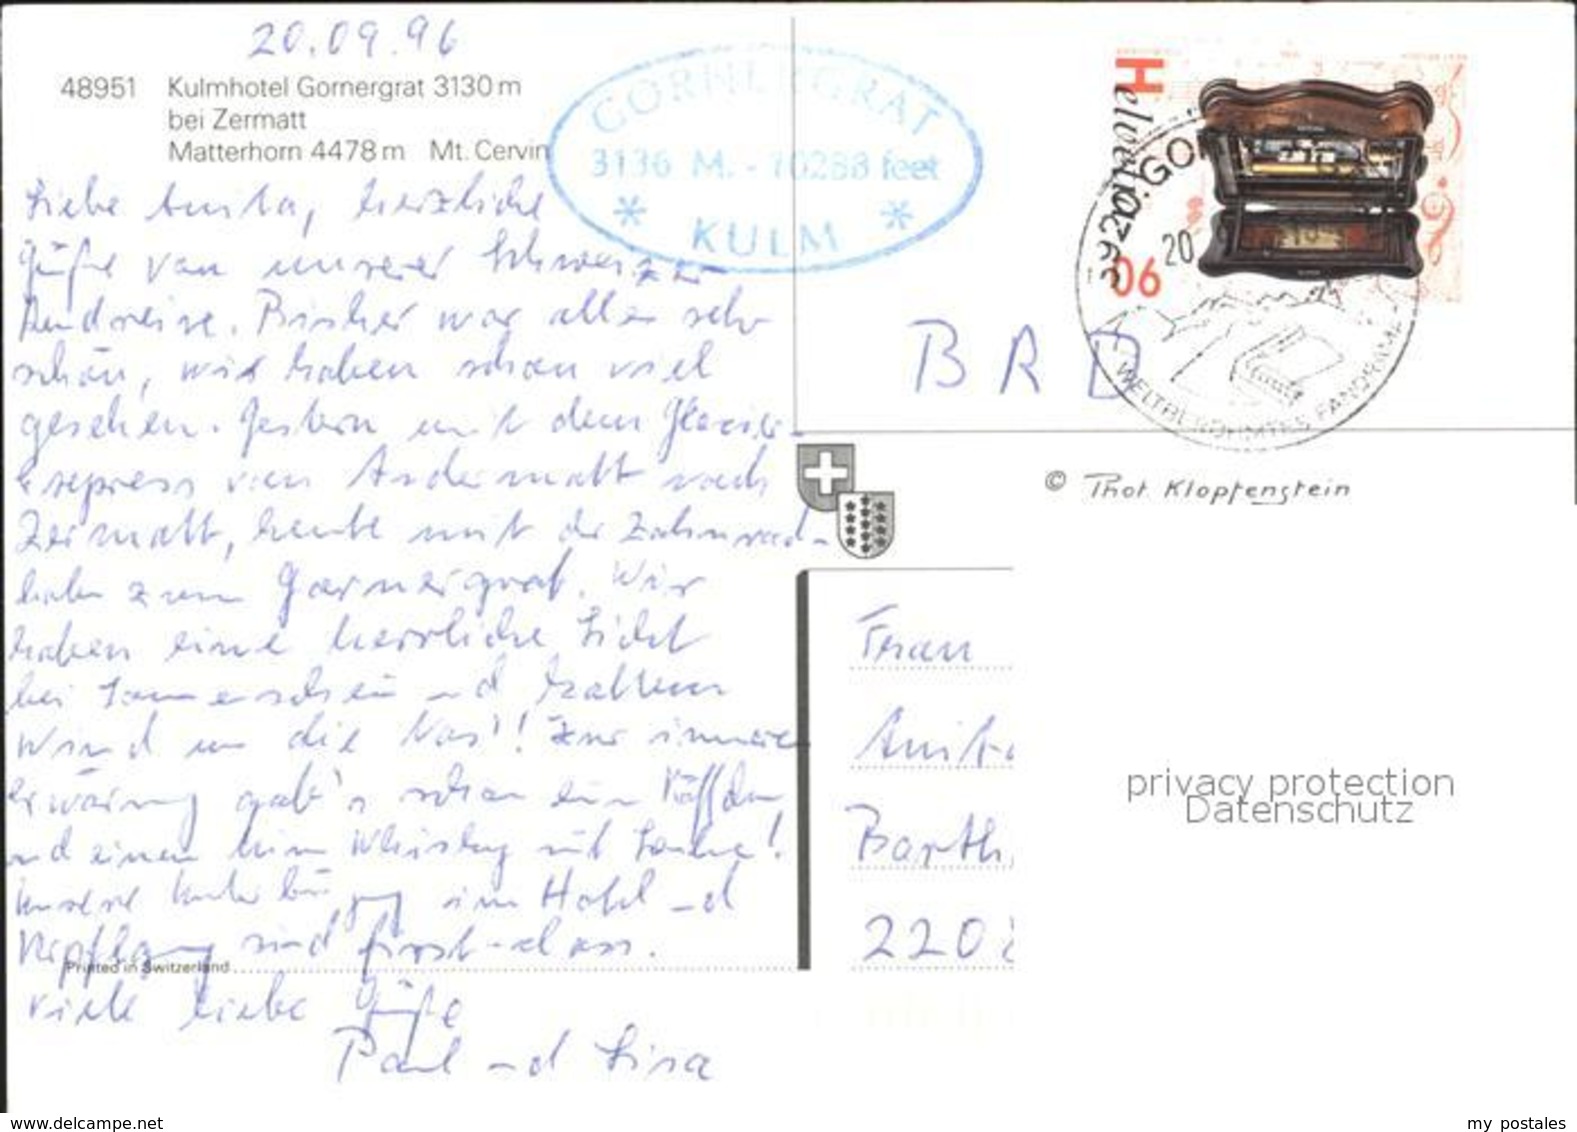 20.09.96
48951 Kulmhotel Gornergrat 3130 m
bei Zermatt
Matterhorn 4478 m Mt. Cervin
GORNERGRAT
3136 M. - 10288 feet
* KULM *
Helvetia
06
GO
20
WELTBERÜHMTES PANORAMA
BRD
© Phot. Klopfenstein
Liebe Anita, herzliche
Grüße von unserer Schweizer
Rundreise. Bisher war alles sehr
schön, wir haben schon viel
gesehen. Gestern mit dem Glacier-
express von Andermatt nach
Zermatt, heute mit der Zahnrad-
bahn zum Gornergrat. Wir
haben eine herrliche Sicht
bei Sonnenschein und kaltem
Wind um die Nas'! Zur inneren
Erwärmung gab's schon ein Käffchen
und einen Whisky mit
Unsere Unterbringung im Hotel und
Verpflegung sind first-class.
Printed in Switzerland
Viele liebe Grüße
Paul und Lisa
Frau
Anita
Barth
220
privacy protection
Datenschutz
www.delcampe.net
my postales